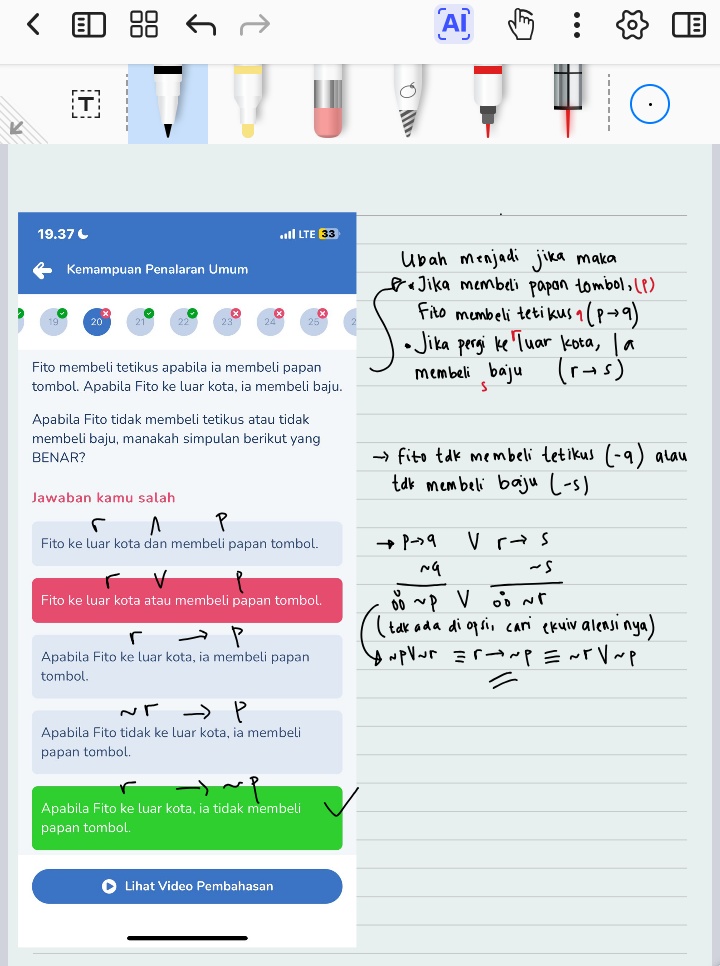 AI
T
19.37
LTE 33
Kemampuan Penalaran Umum
19 20 21 22 23 24 25 2
Fito membeli tetikus apabila ia membeli papan
tombol. Apabila Fito ke luar kota, ia membeli baju.
Apabila Fito tidak membeli tetikus atau tidak
membeli baju, manakah simpulan berikut yang
BENAR?
Jawaban kamu salah
r ∧ p
Fito ke luar kota dan membeli papan tombol.
r ∨ p
Fito ke luar kota atau membeli papan tombol.
r → p
Apabila Fito ke luar kota, ia membeli papan
tombol.
~r → p
Apabila Fito tidak ke luar kota, ia membeli
papan tombol.
r → ~p
Apabila Fito ke luar kota, ia tidak membeli
papan tombol.
Lihat Video Pembahasan
Ubah menjadi jika maka
• Jika membeli papan tombol, (p)
Fito membeli tetikus q (p → q)
• Jika pergi ke luar kota, ia
r
membeli baju (r → s)
s
→ Fito tdk membeli tetikus (-q) atau
tdk membeli baju (-s)
→ p→q ∨ r → s
~q ~s
∴ ~p ∨ ∴ ~r
(tdk ada di opsi, cari ekuivalensinya)
~p∨~r ≡ r → ~p ≡ ~r ∨ ~p